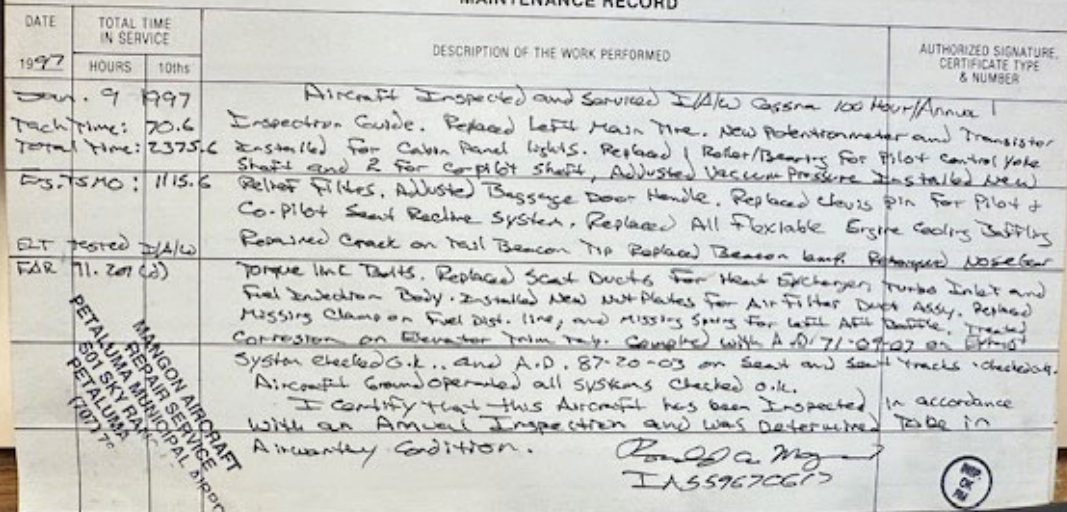 MAINTENANCE RECORD
DATE
TOTAL TIME
IN SERVICE
DESCRIPTION OF THE WORK PERFORMED
AUTHORIZED SIGNATURE,
CERTIFICATE TYPE
& NUMBER
1997 HOURS 10ths
Jan. 9 1997 Aircraft Inspected and Serviced I/A/W Cessna 100 Hour/Annual
Tach Time: 70.6 Inspection Guide. Replaced Left Main Tire. New Potentionmeter and Transistor
Total Time: 2375.6 Installed For Cabin Panel lights. Replaced 1 Roller/Bearing For Pilot Control Yoke
Shaft and 2 For Co-pilot Shaft, Adjusted Vaccum Pressure Installed New
Eg. TSMO: 1115.6 Relief Filter. Adjusted Baggage Door Handle. Replaced clevis pin For Pilot +
Co-Pilot Seat Recline System. Replaced All Flexiable Engine Cooling Baffling
ELT Tested I/A/W Repaired Crack on Tail Beacon Tip Replaced Beacon lamp. Retorqued Nose Gear
FAR 91.207(d) Torque link Bolts. Replaced Scat Ducts For Heat Exchanger, Turbo Inlet and
Fuel Injection Body. Installed New Nut Plates For Air Filter Duct Assy. Replaced
Missing Clamp on Fuel Dist. line, and Missing Spring For Left Aft Baffle. Treated
Corrosion on Elevator Trim Tab. Complied with A.D. 71-09-07 on Exhaust
System checked o.k.. and A.D. 87-20-03 on Seat and Seat Tracks. checked o.k.
Aircraft Ground operated all systems checked o.k.
I certify that this Aircraft has been Inspected in accordance
with an Annual Inspection and was Determined To be in
Airworthy Condition.
MANGON AIRCRAFT
REPAIR SERVICE
PETALUMA MUNICIPAL AIRPO
601 SKY RAN
PETALUMA
(707) 7
INSP.
OK